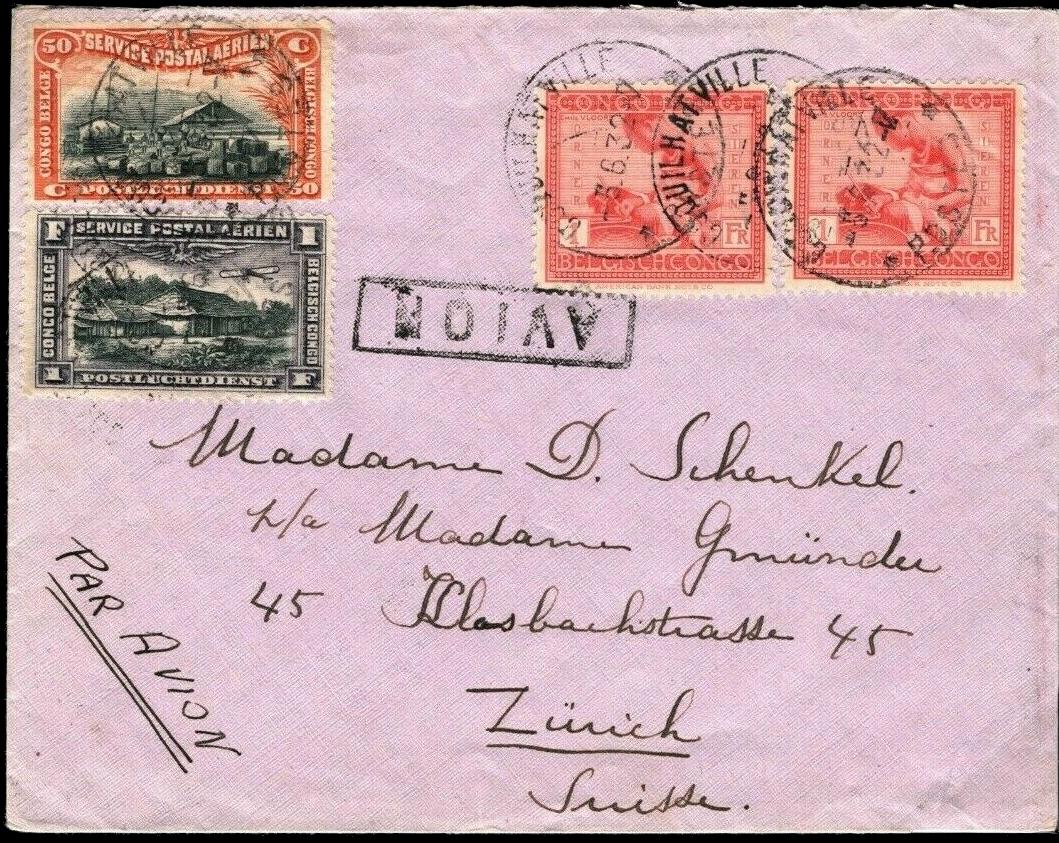 50 SERVICE POSTAL AÉRIEN C
CONGO BELGE
BELGISCH CONGO
C POSTLUCHTDIENST 50
F SERVICE POSTAL AÉRIEN 1
CONGO BELGE
BELGISCH CONGO
1 POSTLUCHTDIENST F
QUILHATVILLE
5.6.32
QUILHATVILLE
CONGO BELGE
1 FR
BELGISCH CONGO
AMERICAN BANK NOTE CO
1 FR
BELGISCH CONGO
AMERICAN BANK NOTE CO
AVION
Madame D. Schenkel.
p/a Madame Gmünder
45 Klosbachstrasse 45
Zürich
Suisse.
PAR AVION